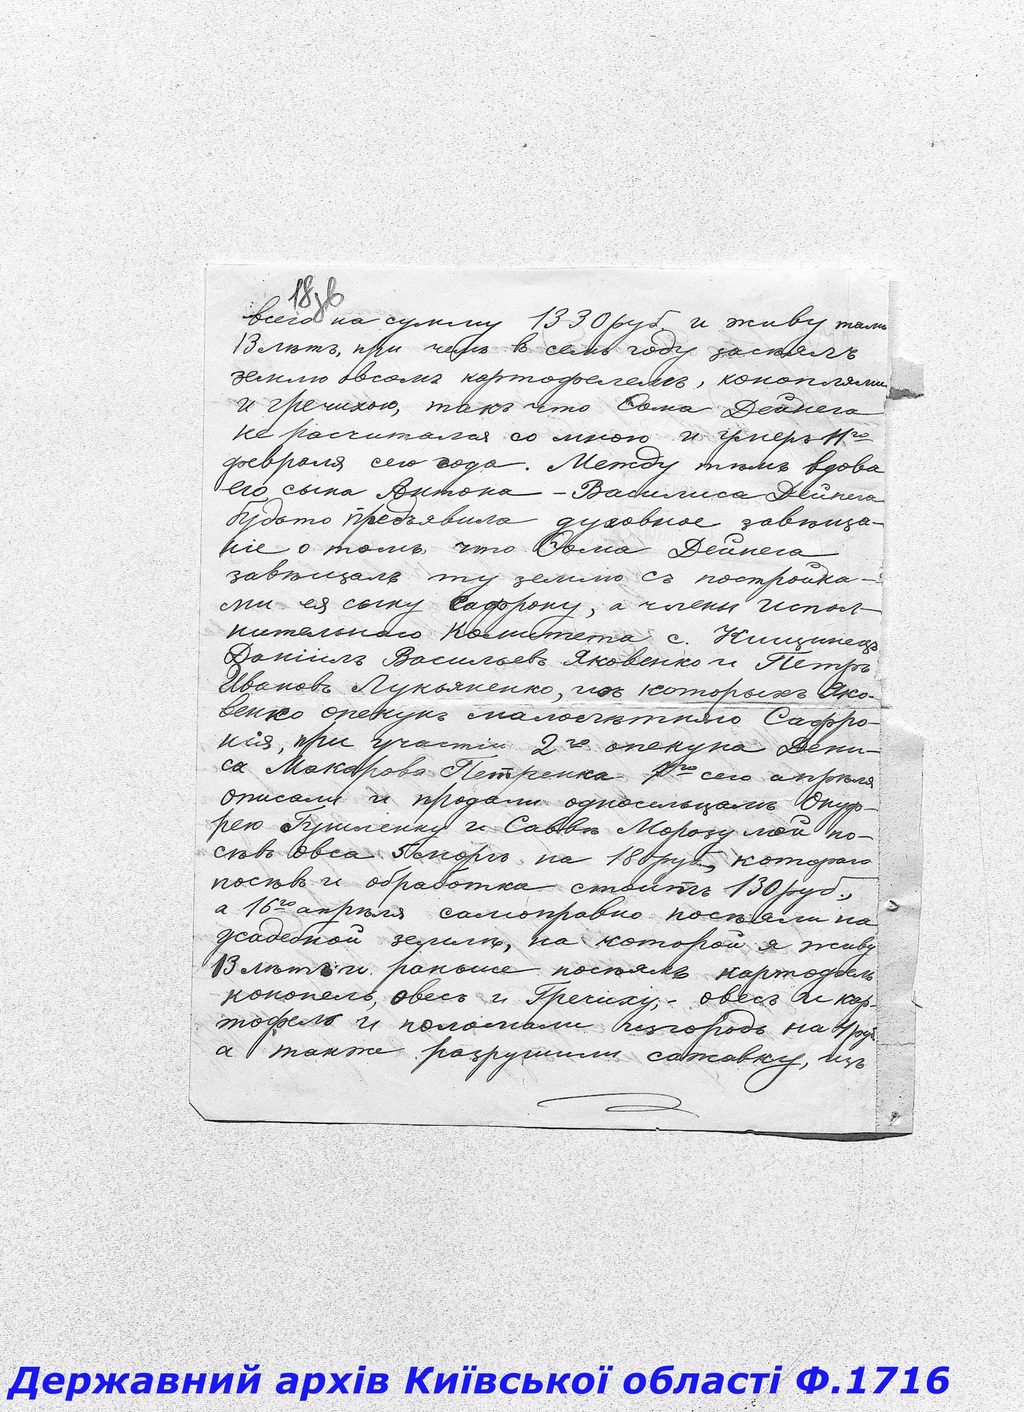 18 зв
всего на сумму 1330 руб. и живу тамъ
13 лѣтъ, при чемъ в семъ году засѣялъ
землю овсомъ картофелемъ, коноплями
и гречихою, такъ что Ѳома Дейнега
не расчитался со мною и умеръ 11го
февраля сего года. Между тѣмъ вдова
его сына Антона – Василиса Дейнега
будто предъявила духовное завѣща-
ніе о томъ, что Ѳома Дейнега
завѣщалъ ту землю съ постройка-
ми ея сыну Сафрону, а члены испол-
нительнаго Комитета с. Кищинецъ
Даніилъ Васильевъ Яковенко и Петръ
Ивановъ Лукьяненко, изъ которыхъ Яко-
венко опекунъ малолѣтняго Сафро-
нія, при участіи 2го опекуна Дени-
са Макарова Петренка сего апрѣля
описали и продали односельцамъ Онуф-
рею и Саввѣ Морозу мой по-
сѣвъ овса 5 морг. на 180 руб., котораго
посѣвъ и обработка стоитъ 130 руб.,
а 16го апрѣля самоправно посѣяли на
усадебной землѣ, на которой я живу
13 лѣтъ и раньше посѣялъ картофель
конопель, овесъ и Гречиху, – овесъ и кар-
тофель и поломали изгородь на 4 руб.
а также разрушили сажавку, изъ
Державний архів Київської області Ф.1716